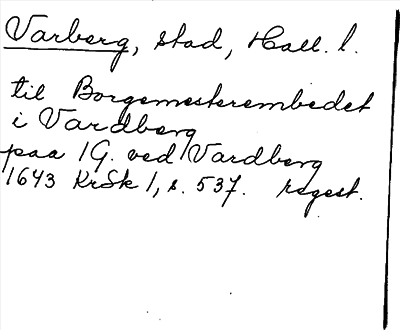 Varberg, stad, Hall. l.
til Borgemesterembedet
i Vardberg
paa 1 G. ved Vardberg
1643 KrSk 1, s. 537. regest.